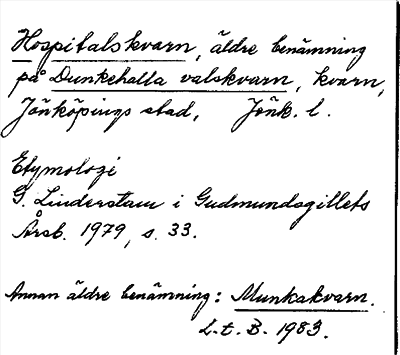 Hospitalskvarn, äldre benämning
på Dunkehalla valskvarn, kvarn,
Jönköpings stad, Jönk. l.
Etymologi
G. Linderstam i Gudmundsgillets
Årsb. 1979, s. 33.
Annan äldre benämning: Munkakvarn.
L.t. B. 1983.